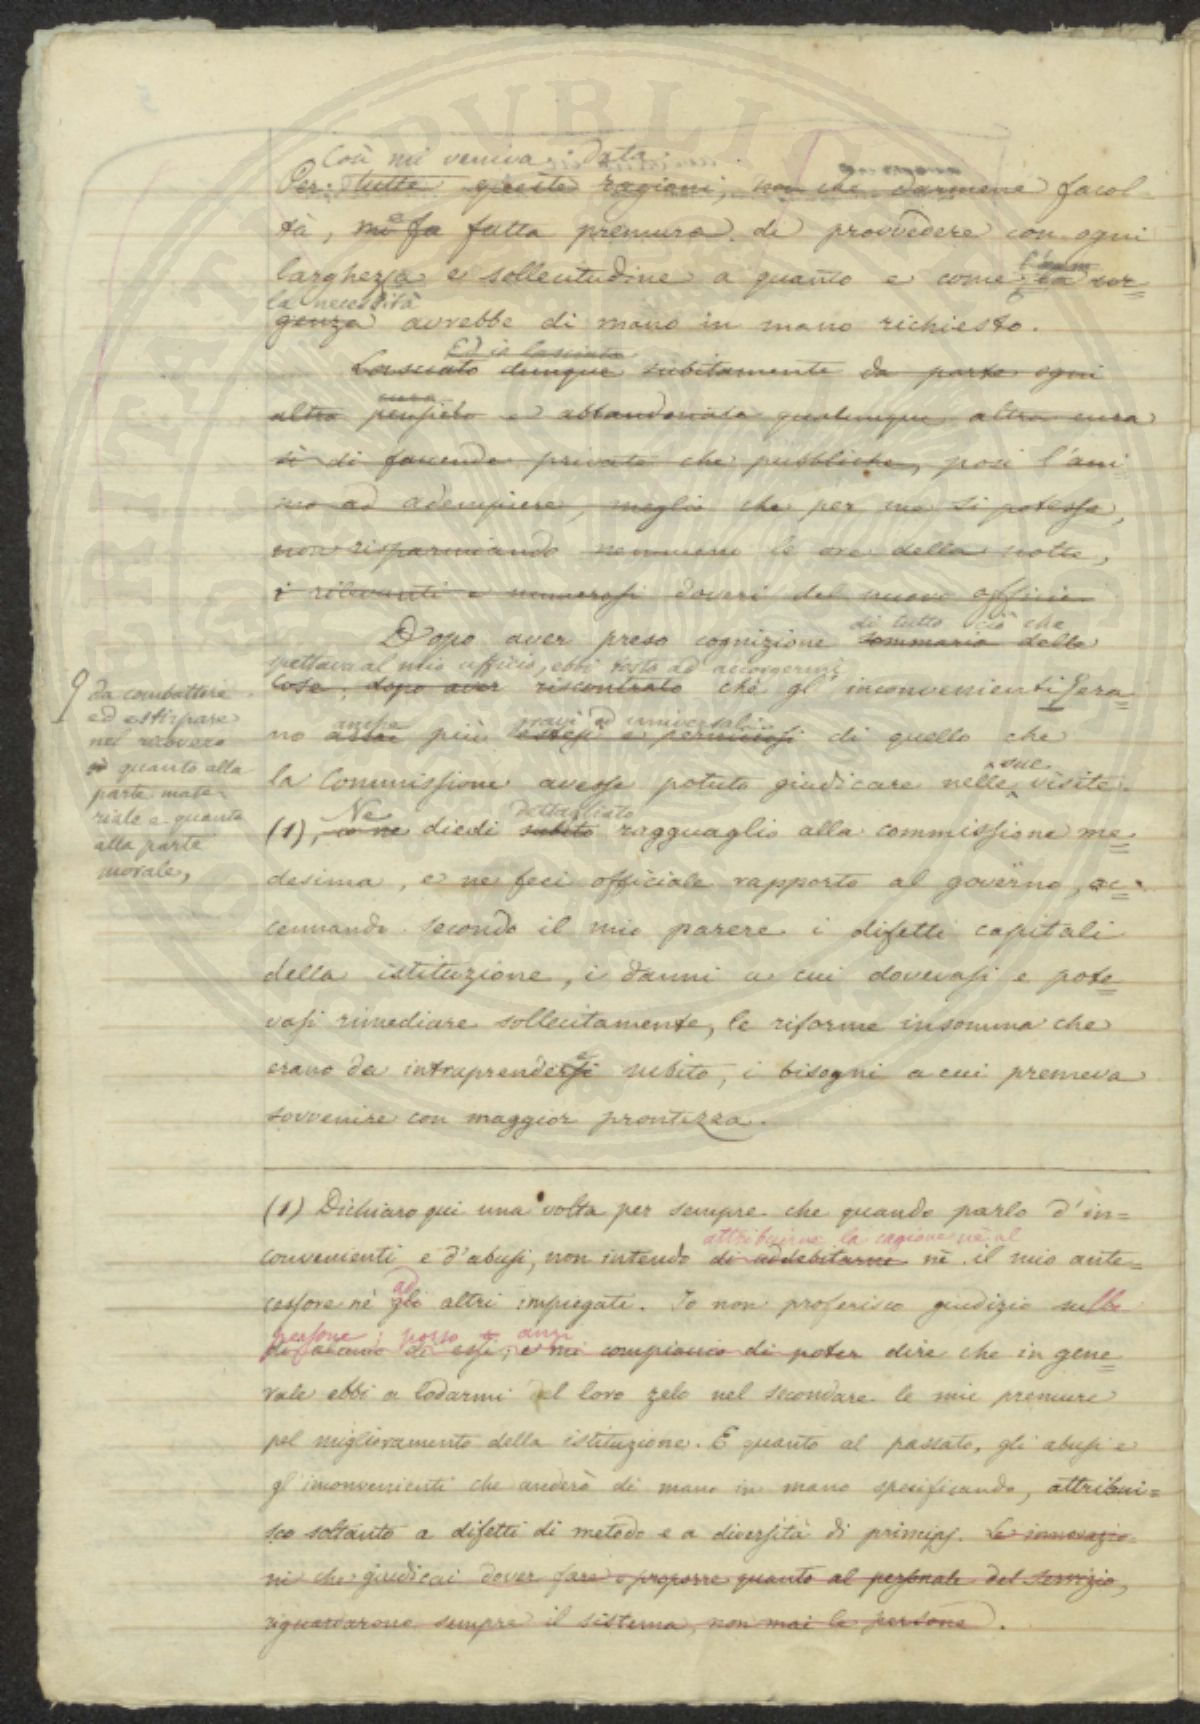 Così mi veniva data
Per tutte queste ragioni, non che darmene facol-
tà, mi fu fatta premura di provvedere con ogni
larghezza e sollecitudine a quanto e come la sor=
la necessità
genza avrebbe di mano in mano richiesto.
Ed io lasciato
Lasciato dunque subitamente da parte ogni
cura
altro pensiero e abbandonata qualunque altra cura
sì di faccende private che pubbliche, posi l'ani
mo ad adempiere, meglio che per me si potesse,
non risparmiando nemmeno le ore della notte,
i rilevanti e numerosi doveri del nuovo officio
di tutto ciò che
Dopo aver preso cognizione sommaria delle
spettava al mio ufficio, ebbi tosto ad accorgermi
cose, dopo aver riscontrato che gl'inconvenienti era
da combattere
ed estirpare
nel ricovero
sì quanto alla
parte mate-
riale e quanto
alla parte
morale,
anche gravi ed universali
no assai più estesi e perniciosi di quello che
sue
la Commissione avesse potuto giudicare nelle visite.
Ne dettagliato
(1), io ne diedi subito ragguaglio alla commissione me=
desima, e ne feci officiale rapporto al governo, ac=
cennando secondo il mio parere i difetti capitali
della istituzione, i danni a cui dovevasi e pote=
vasi rimediare sollecitamente, le riforme insomma che
erano da intraprendersi subito, i bisogni a cui premeva
sovvenire con maggior prontezza.
(1) Dichiaro qui una volta per sempre che quando parlo d'in=
attribuirne la cagione nè al
convenienti e d'abusi, non intendo di addebitarne nè il mio ante=
ad
cessore nè gli altri impiegati. Io non proferisco giudizio sulle
persone; posso anzi
di alcuno di essi, e mi compiaccio di poter dire che in gene=
rale ebbi a lodarmi del loro zelo nel secondare le mie premure
pel miglioramento della istituzione. E quanto al passato, gli abusi e
gl'inconvenienti che anderò di mano in mano specificando, attribui=
sco soltanto a difetti di metodo e a diversità di principj. Le innovazio
ni che giudicai dover fare o proporre quanto al personale del servizio,
riguardarono sempre il sistema, non mai le persone.